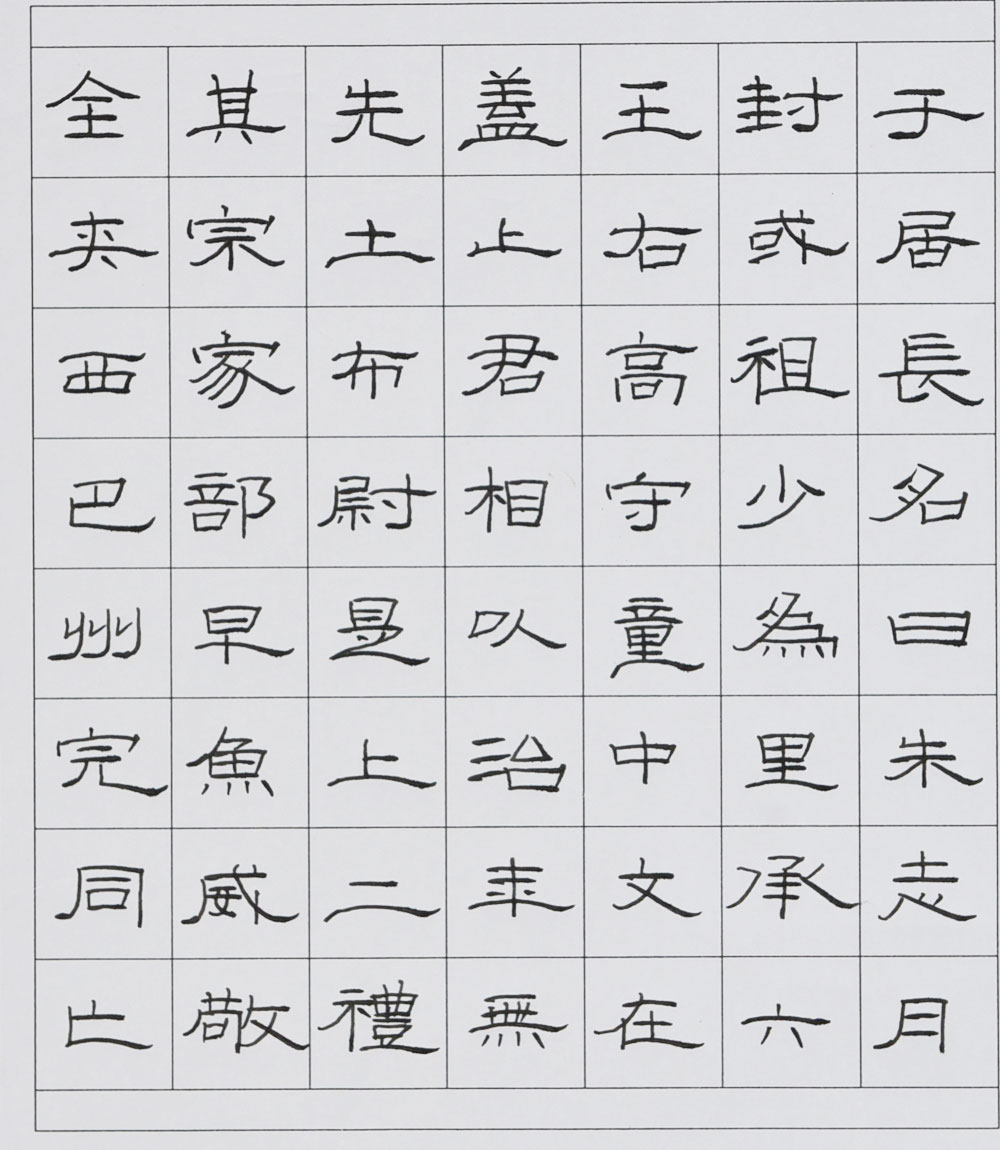 全其先蓋王封于
夾宗土止右或居
西家布君高祖長
巴部尉相守少名
州早是以童為曰
完魚上治中里朱
同威二年文承走
亡敬禮無在六月